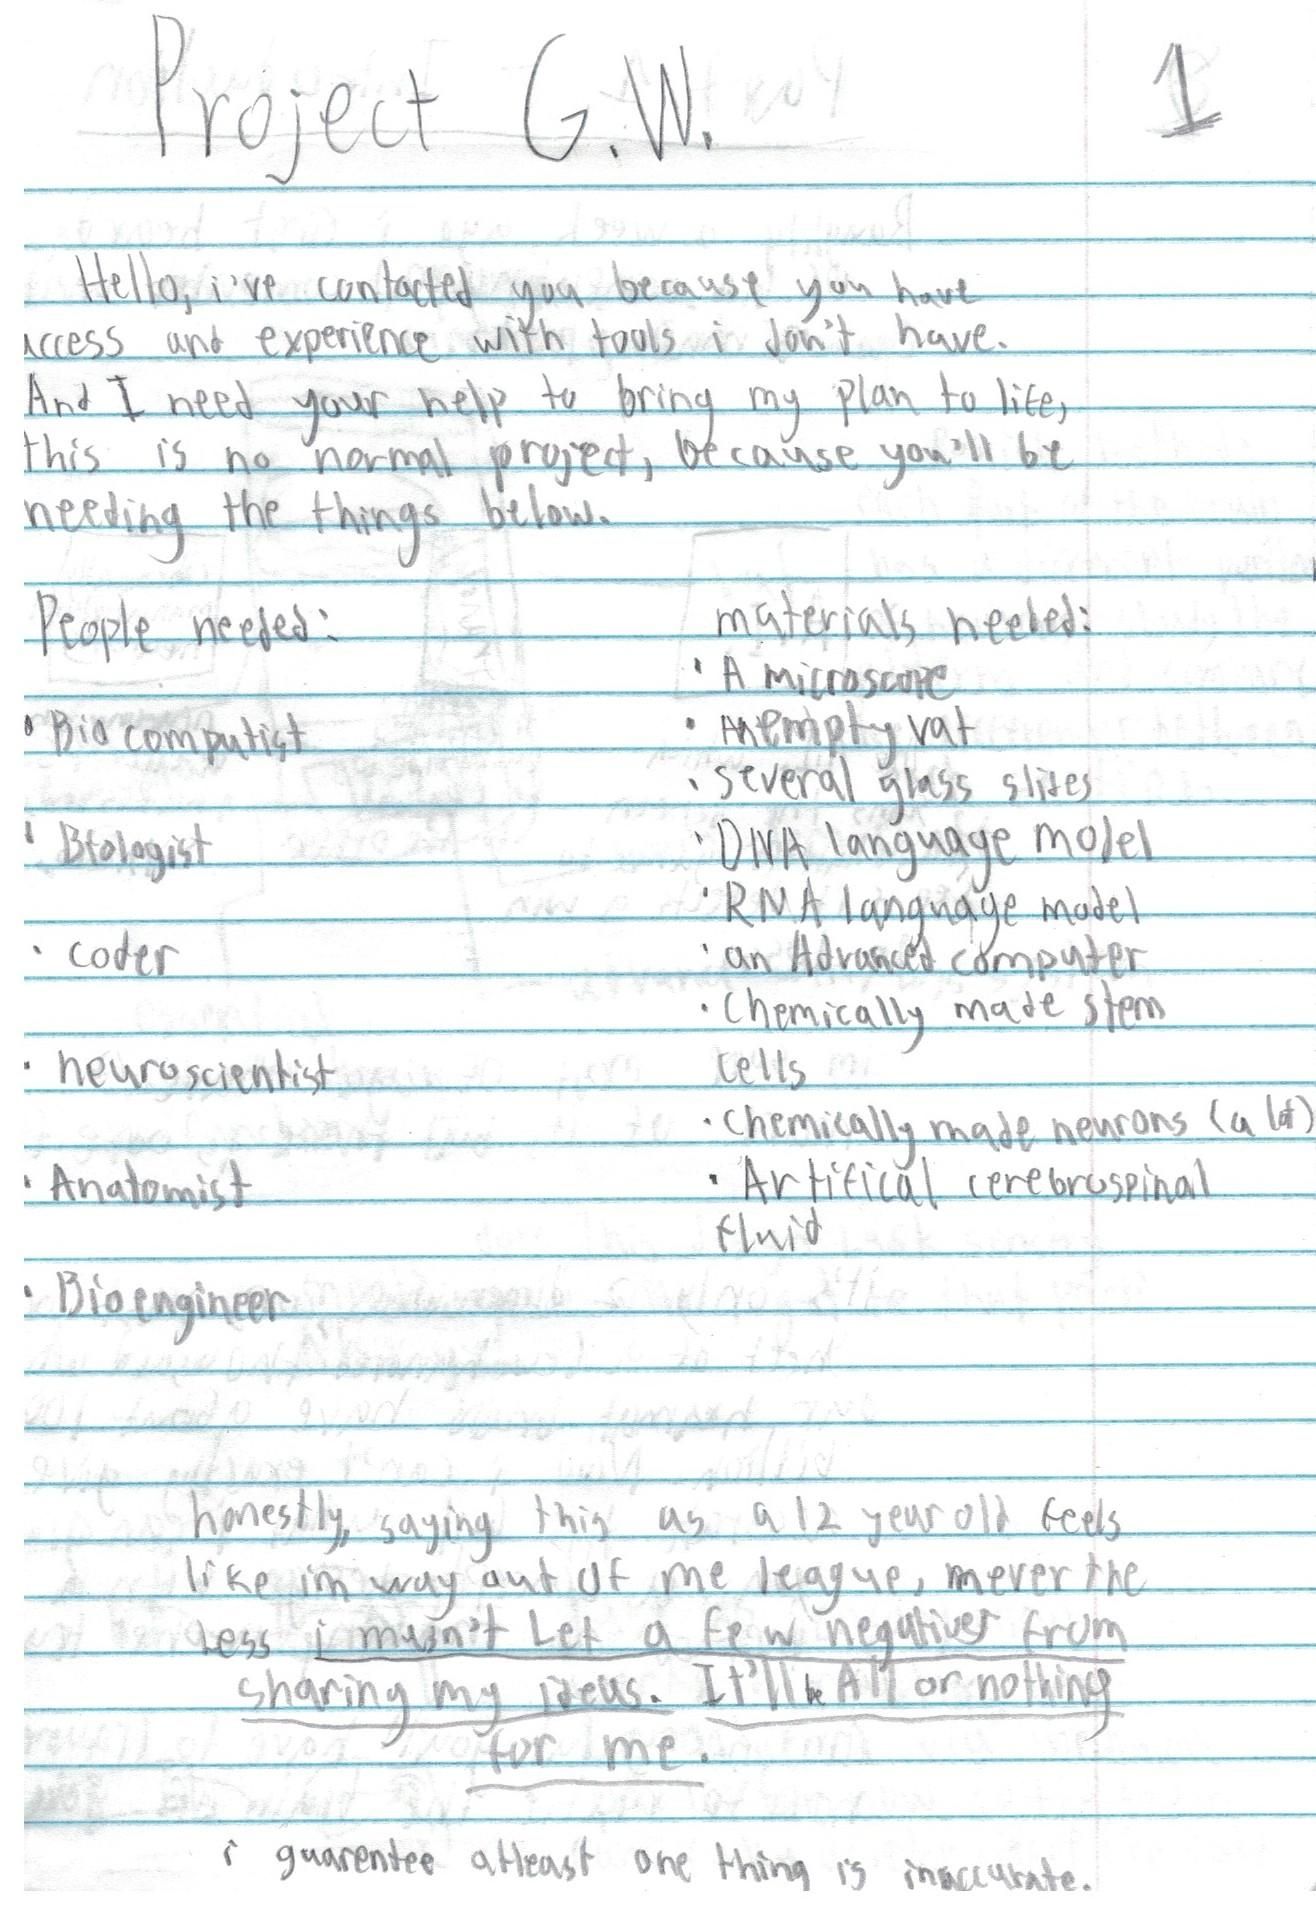 Project G.W.
1
Hello, i've contacted you because you have
access and experience with tools i don't have.
And I need your help to bring my plan to life,
this is no normal project, because you'll be
needing the things below.
People needed:
• Bio computist
• Biologist
• coder
• neuroscientist
• Anatomist
• Bioengineer
materials needed:
• A microscope
• An empty vat
• several glass slides
• DNA language model
• RNA language model
• an Advanced computer
• Chemically made stem
cells
• Chemically made neurons (a lot)
• Artifical cerebrospinal
fluid
honestly, saying this as a 12 year old feels
like im way out of me league, never the
less i musn't Let a few negatives from
sharing my ideas. It'll be All or nothing
for me.
i guarentee atleast one thing is inaccurate.